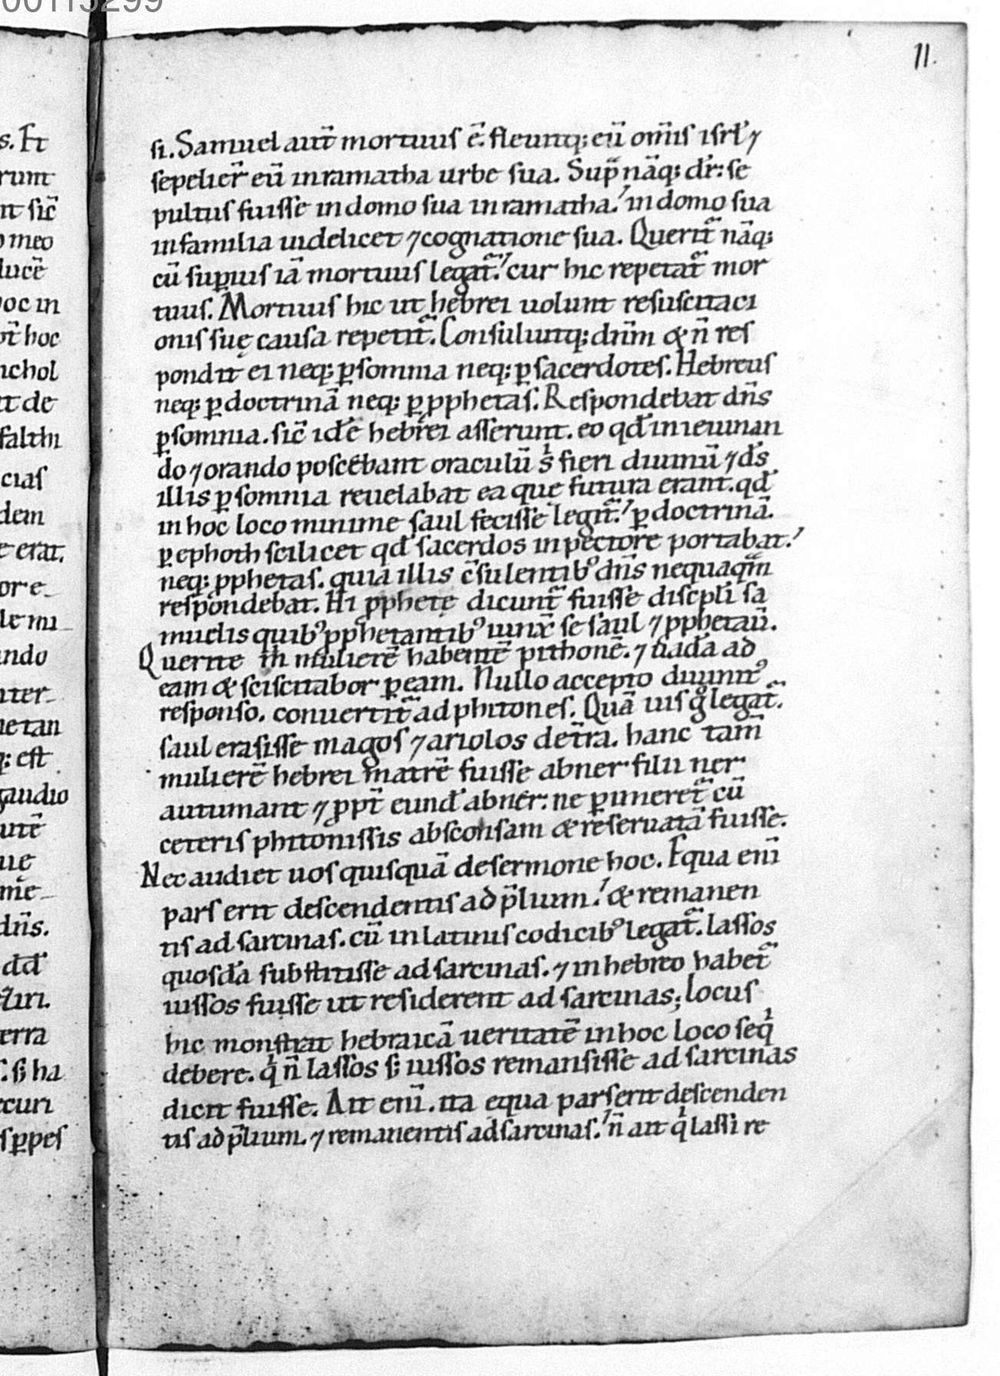 00113299
11.
si. Samuel aut̄ mortuus ē. fleuitq; eū om̄is isrl̄ ⁊
sepelier̄ eū in ramatha urbe sua. Sup̄ nāq; dr̄: se
pultus fuisse in domo sua in ramatha. in domo sua
in familia uidelicet ⁊ cognatione sua. Querit̄ nāq;
cū superius iā mortuus legat̄. cur hic repetat̄ mor
tuus. Mortuus hic ut hebrei uolunt resuscitaci
onis suę causa repetit̄. Consuluitq; dn̄m & n̄ res
pondit ei neq; ꝑ somnia neq; ꝑ sacerdotes. Hebreus
neq; ꝑ doctrinā neq; ꝑ pphetas. Respondebat dn̄s
ꝑ somnia. sic̄ id ē hebrei asserunt. eo qd̄ in ieiunan
do ⁊ orando poscebant oraculū s̄ fieri diuinū ⁊ ds̄
illis ꝑ somnia reuelabat ea que futura erant. qd̄
in hoc loco minime saul fecisse legit̄. ꝑ doctrinā.
ꝑ ephoth scilicet qd̄ sacerdos in pectore portabat.
neq; pphetas. quia illis c̄sulentib; dn̄s nequaqm̄
respondebat. Hi pphetę dicunt̄ fuisse discpl̄i sa
muelis quib; pphetantib; iunx̄ se saul ⁊ pphetau̅.
Querite m̅ mulierē habentē pithonē. ⁊ uadā ad
eam & sciscitabor ꝑ eam. Nullo accepto diuinit;
responso. conuertit̄ ad phitones. Quā uis g̊ legat̄.
saul erasisse magos ⁊ ariolos de tr̄a. hanc tam̄
mulierē hebrei matrē fuisse abner filii ner
autumant ⁊ ppt̄ eund̄ abner: ne ꝑimeret̄ cū
ceteris phitonissis absconsam & reseruatā fuisse.
Nec audiet uos quisquā de sermone hoc. Equa eni̅
pars erit descendentis ad p̄lium. & remanen
tis ad sarcinas. cū in latinis codicib; legat̄. lassos
quosdā substitisse ad sarcinas. ⁊ in hebreo habet̄
iussos fuisse ut residerent ad sarcinas; locus
hic monstrat hebraicā ueritatē in hoc loco seq̇
debere. q̇ n̄ lassos s; iussos remansisse ad sarcinas
dicit fuisse. Ait eni̅. ita ęqua pars erit descenden
tis ad p̄lium. ⁊ remanentis ad sarcinas. n̄ ait q̇ lassi re